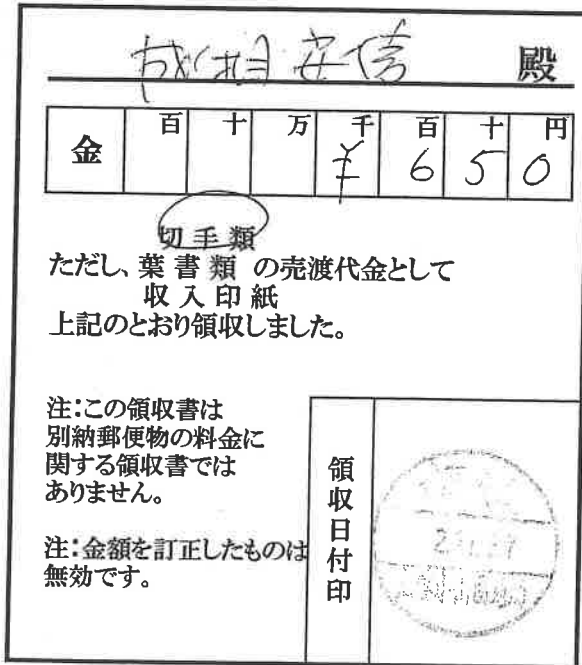 成相安信 殿
金 百 十 万 千 百 十 円
¥ 6 5 0
切手類
ただし、葉書類 の売渡代金として
収入印紙
上記のとおり領収しました。
注:この領収書は
別納郵便物の料金に
関する領収書では
ありません。
注:金額を訂正したものは
無効です。
領収日付印